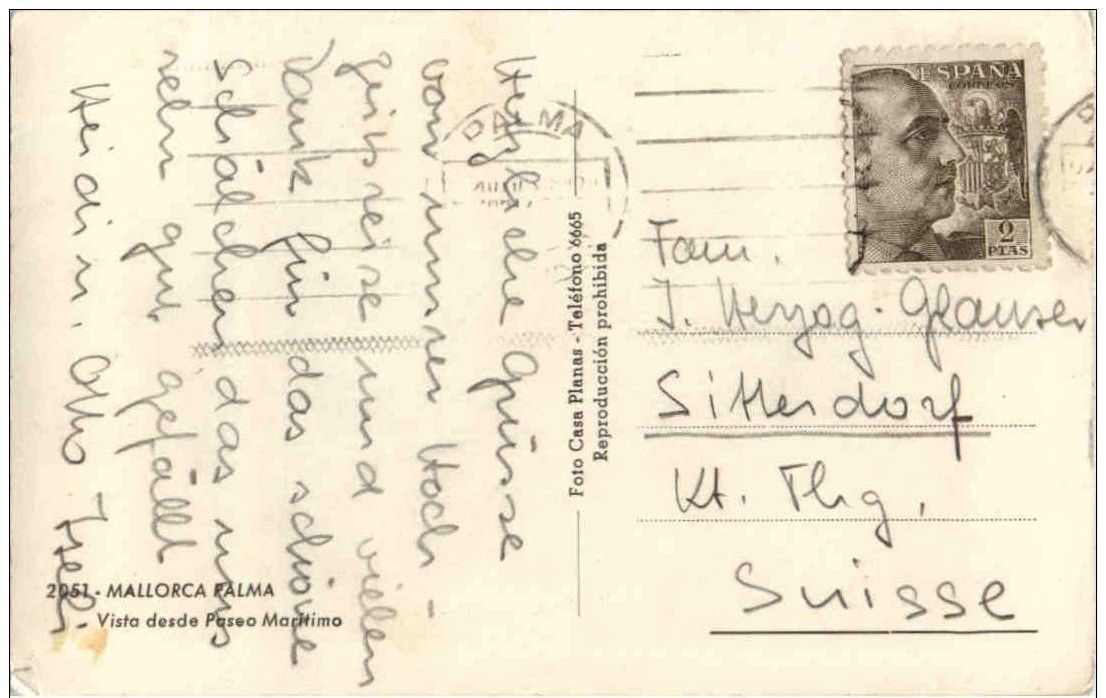 Herzliche Grüsse
von unsrer Hoch-
zeitsreise und vielen
Dank für das schöne
Schälchen das uns
sehr gut gefällt
Heidi u. Otto
2051 - MALLORCA PALMA
Vista desde Paseo Marítimo
Foto Casa Planas - Teléfono 6665
Reproducción prohibida
PALMA
ESPAÑA
CORREOS
2
PTAS
Fam.
J. Herzog-Glauser
Sitterdorf
Kt. Thg.
Suisse